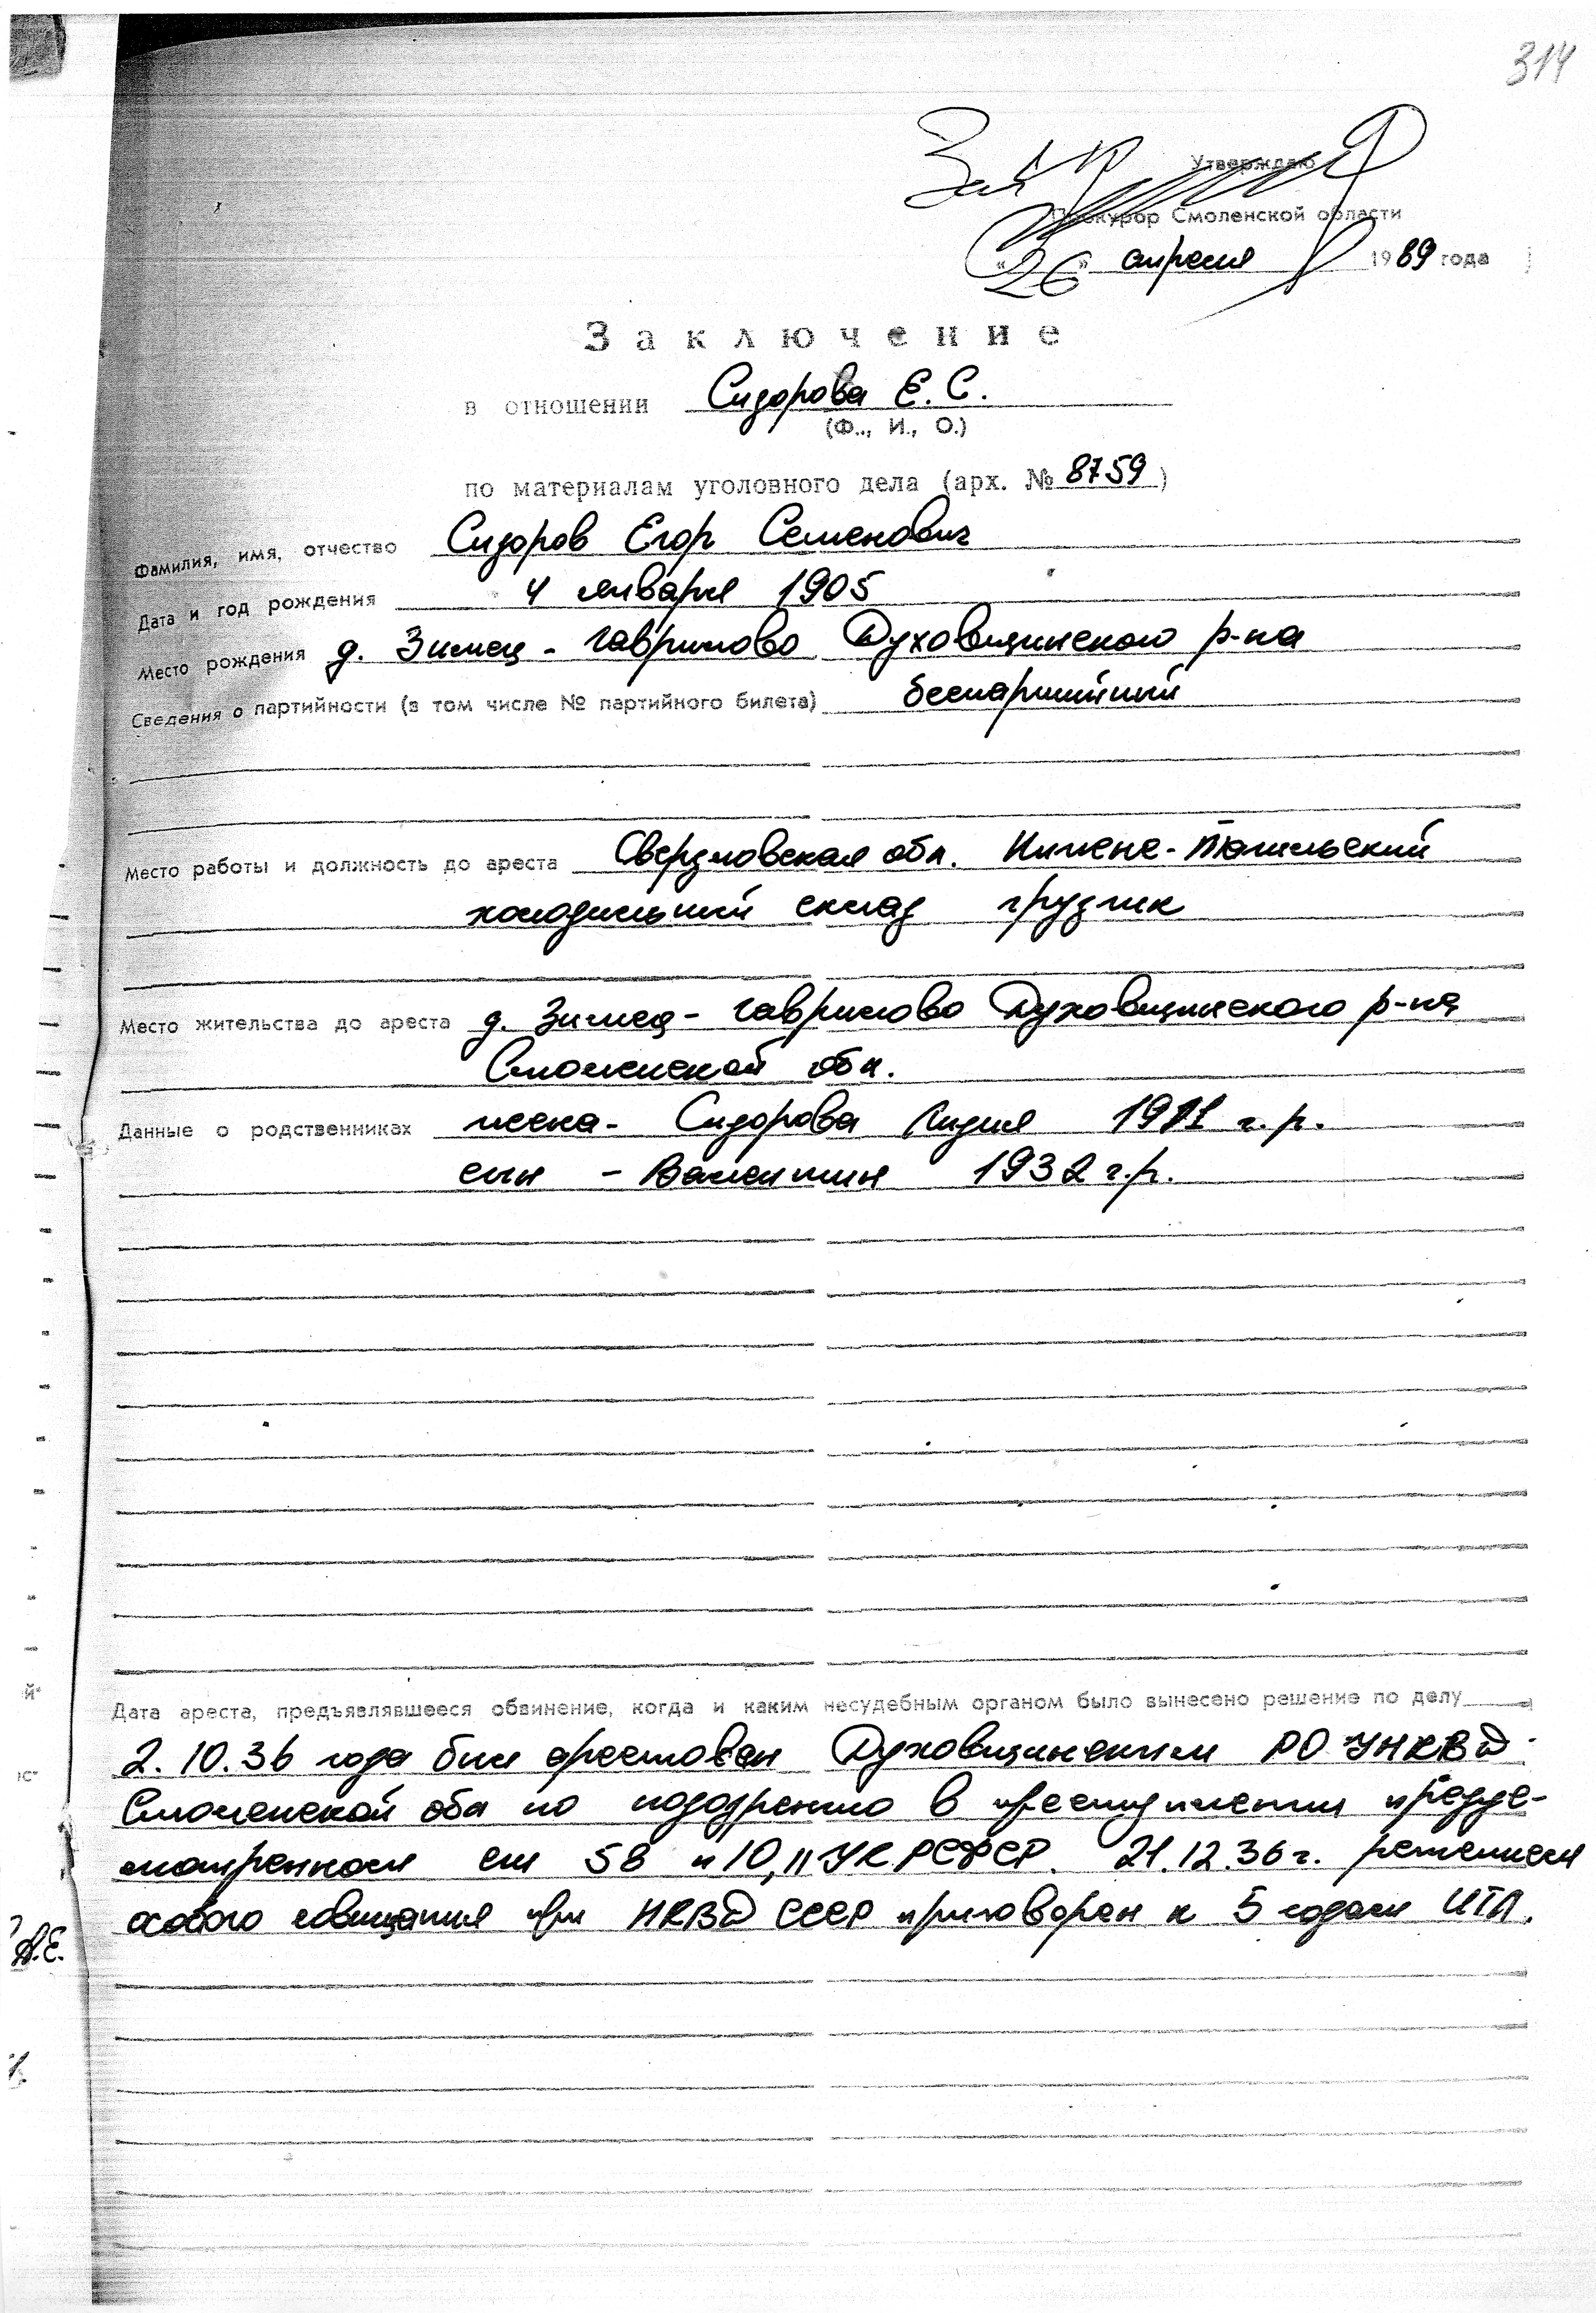 314
Утверждаю
Прокурор Смоленской области
«26» апреля 1989 года
Заключение
в отношении Сидорова Е. С.
(Ф.., И., О.)
по материалам уголовного дела (арх. № 8759)
Фамилия, имя, отчество Сидоров Егор Семенович
Дата и год рождения 4 января 1905
Место рождения д. Зимец - Гаврилово Духовщинского р-на
Сведения о партийности (в том числе № партийного билета) беспартийный
Место работы и должность до ареста Свердловская обл. Нижне-Тагильский
холодильный склад грузчик
Место жительства до ареста д. Зимец - Гаврилово Духовщинского р-на
Смоленской обл.
Данные о родственниках жена - Сидорова Лидия 1911 г.р.
сын - Валентин 1932 г.р.
Дата ареста, предъявлявшееся обвинение, когда и каким несудебным органом было вынесено решение по делу
2.10.36 года был арестован Духовщинским РО УНКВД
Смоленской обл по подозрению в преступлении предус-
мотренном ст 58 п 10, 11 УК РСФСР. 21.12.36 г. решением
особого совещания при НКВД СССР приговорен к 5 годам ИТЛ.
А.Е.